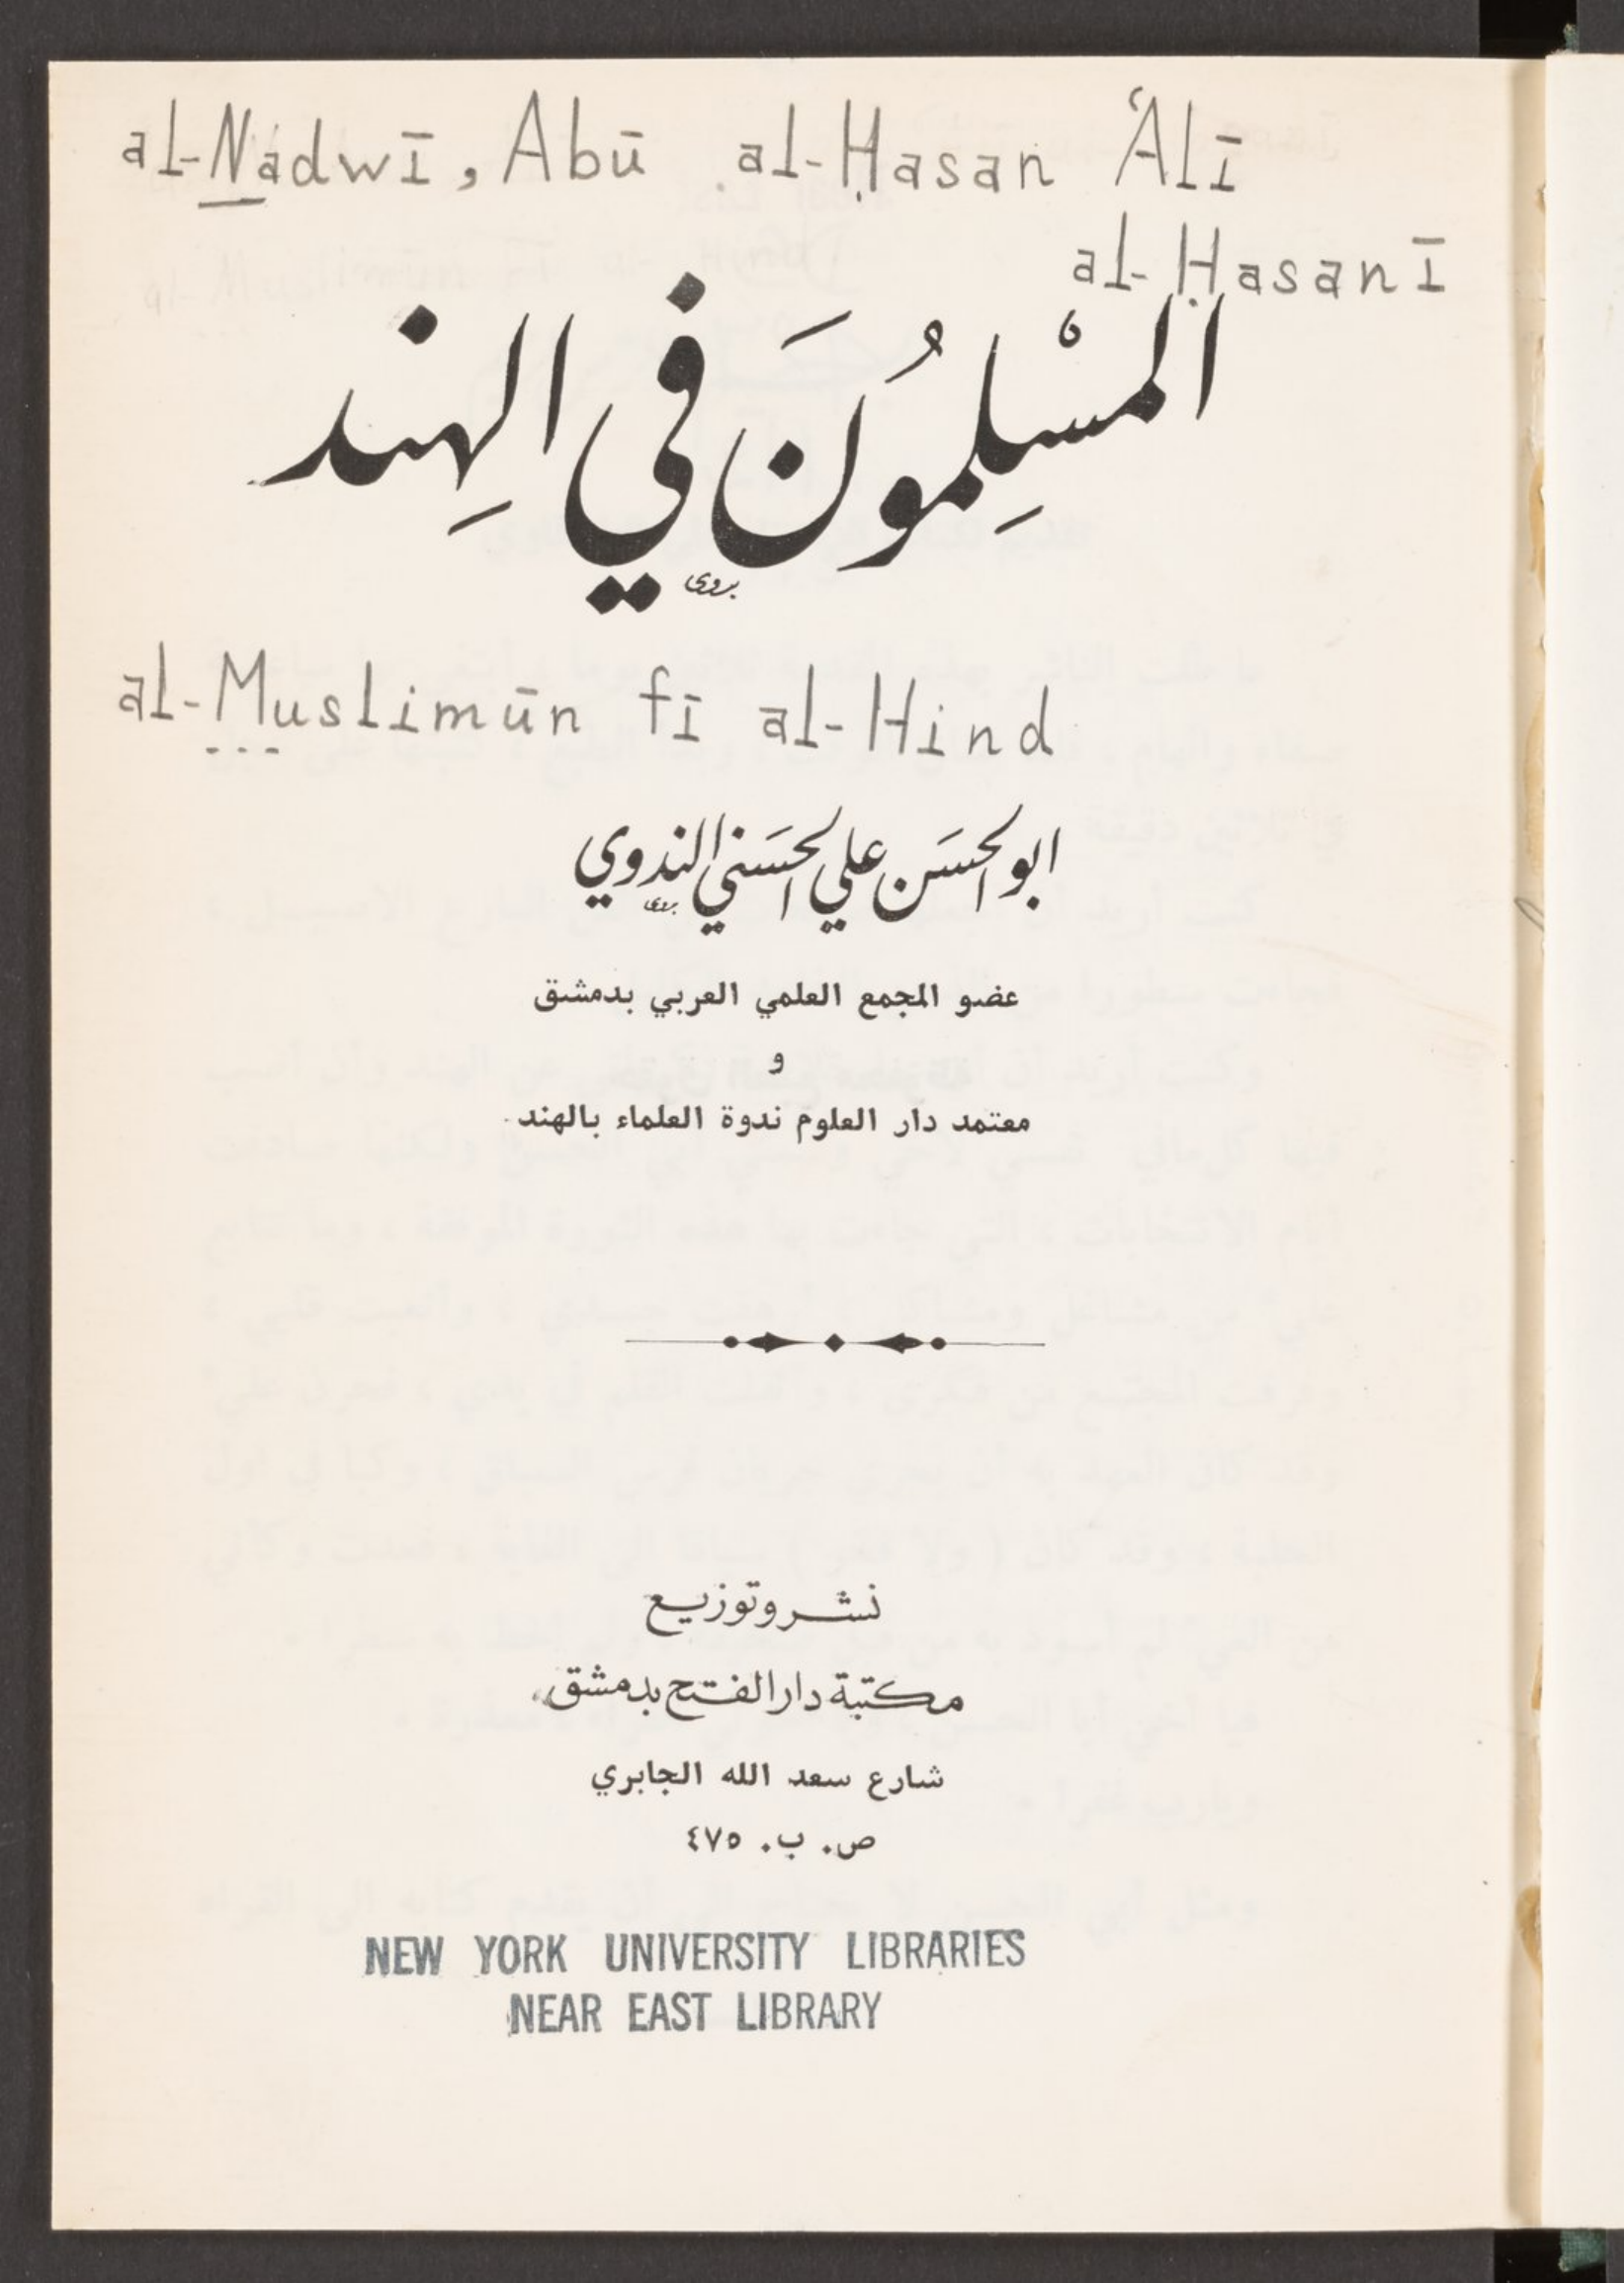 al-Nadwī, Abū al-Ḥasan ʿAlī
al-Ḥasanī
المسْلِمُونَ في الهِند
al-Muslimūn fī al-Hind
ابو الحسَن علي الحسَني الندوي
عضو المجمع العلمي العربي بدمشق
و
معتمد دار العلوم ندوة العلماء بالهند
نشر وتوزيع
مكتبة دار الفتح بدمشق
شارع سعد الله الجابري
ص. ب. ٤٧٥
NEW YORK UNIVERSITY LIBRARIES
NEAR EAST LIBRARY